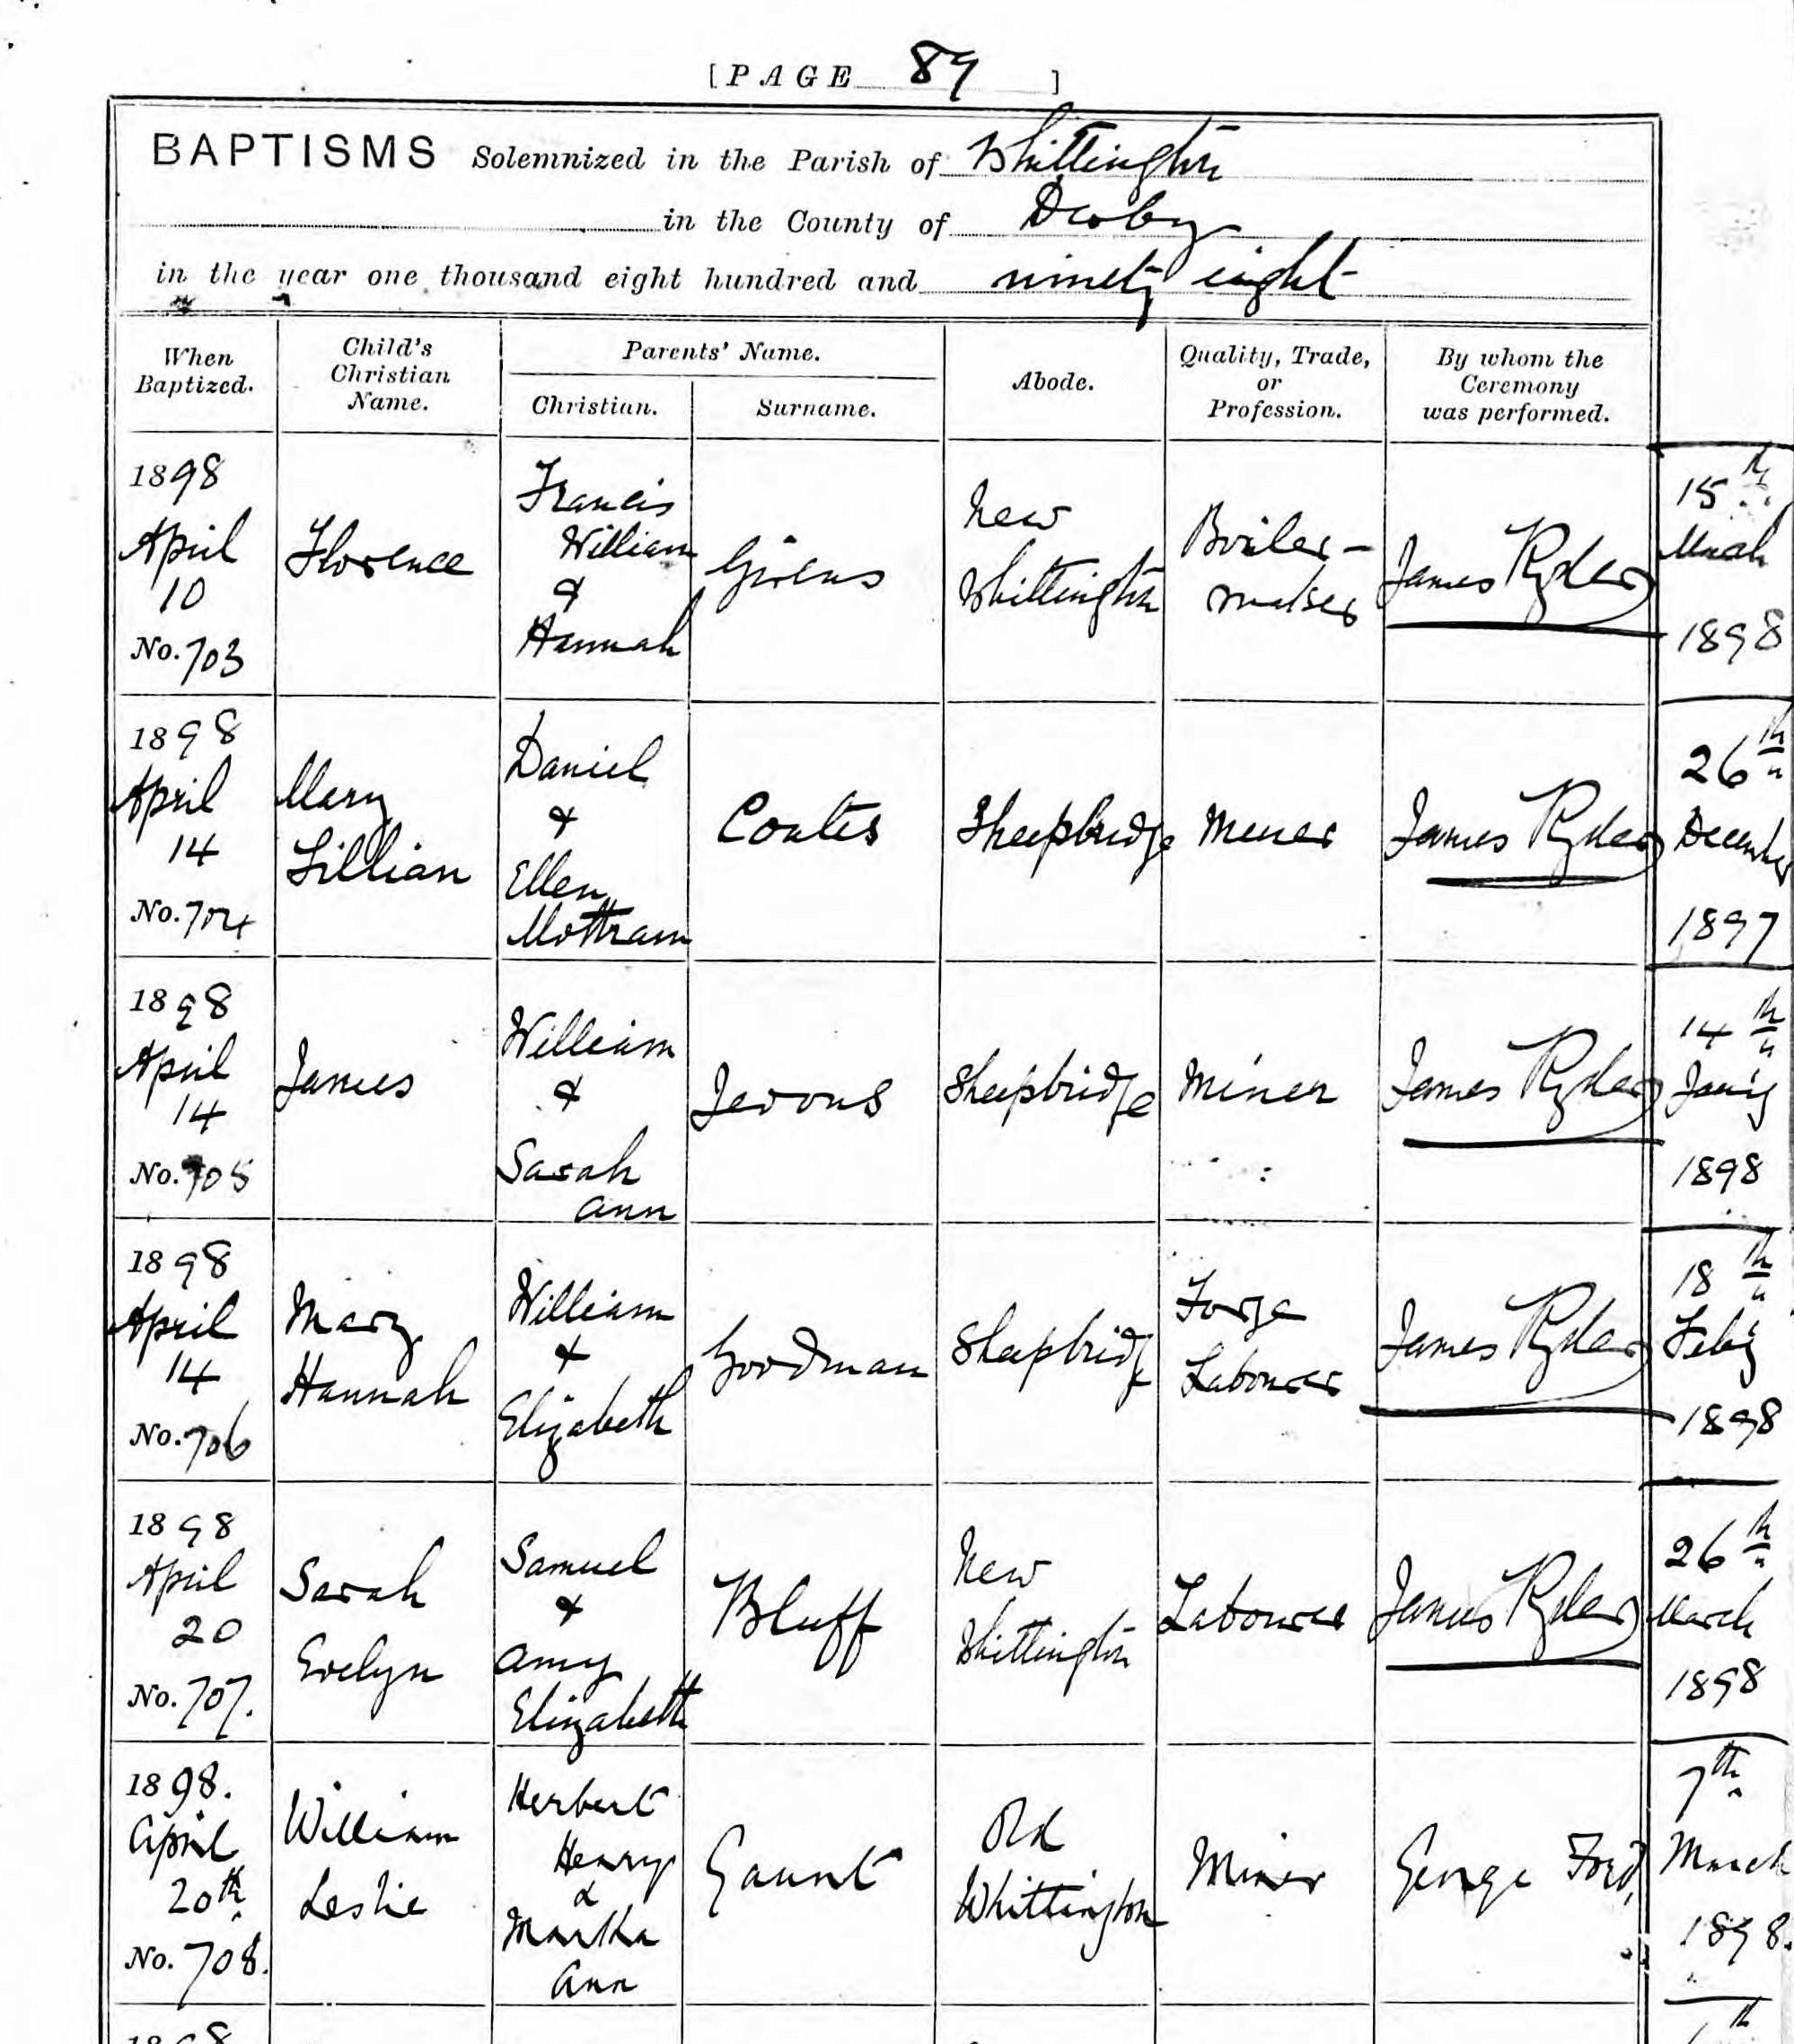 [PAGE 89 ]
BAPTISMS Solemnized in the Parish of Whittington
in the County of Derby
in the year one thousand eight hundred and ninety eight
When Baptized.
Child's Christian Name.
Parents' Name.
Christian.
Surname.
Abode.
Quality, Trade, or Profession.
By whom the Ceremony was performed.
1898
April
10
No. 703
Florence
Francis
William
&
Hannah
Givens
New
Whittington
Boiler-
maker
James Ryder
15th
March
1898
1898
April
14
No. 704
Mary
Lillian
Daniel
&
Ellen
Mottram
Coates
Sheepbridge
Miner
James Ryder
26th
December
1897
1898
April
14
No. 705
James
William
&
Sarah
Ann
Jevons
Sheepbridge
Miner
James Ryder
14th
Jany
1898
1898
April
14
No. 706
Mary
Hannah
William
&
Elizabeth
Goodman
Sheepbridge
Forge
Labourer
James Ryder
18th
Feby
1898
1898
April
20
No. 707.
Sarah
Evelyn
Samuel
&
Amy
Elizabeth
Bluff
New
Whittington
Labourer
James Ryder
26th
March
1898
1898.
April
20th
No. 708.
William
Leslie
Herbert
Henry
&
Martha
Ann
Gaunt
Old
Whittington
Miner
George Ford,
7th
March
1898.
1898
th